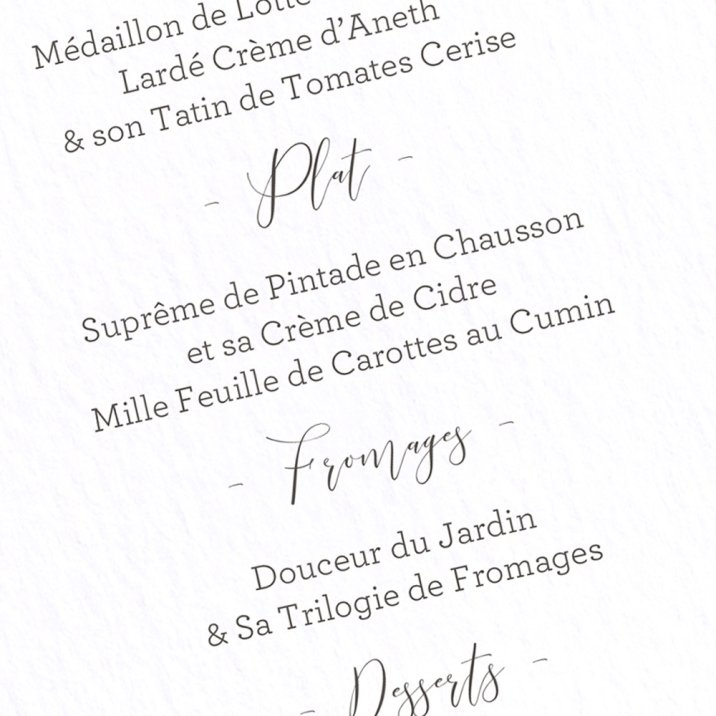 Médaillon de Lotte
Lardé Crème d’Aneth
& son Tatin de Tomates Cerise
- Plat -
Suprême de Pintade en Chausson
et sa Crème de Cidre
Mille Feuille de Carottes au Cumin
- Fromages -
Douceur du Jardin
& Sa Trilogie de Fromages
- Desserts -